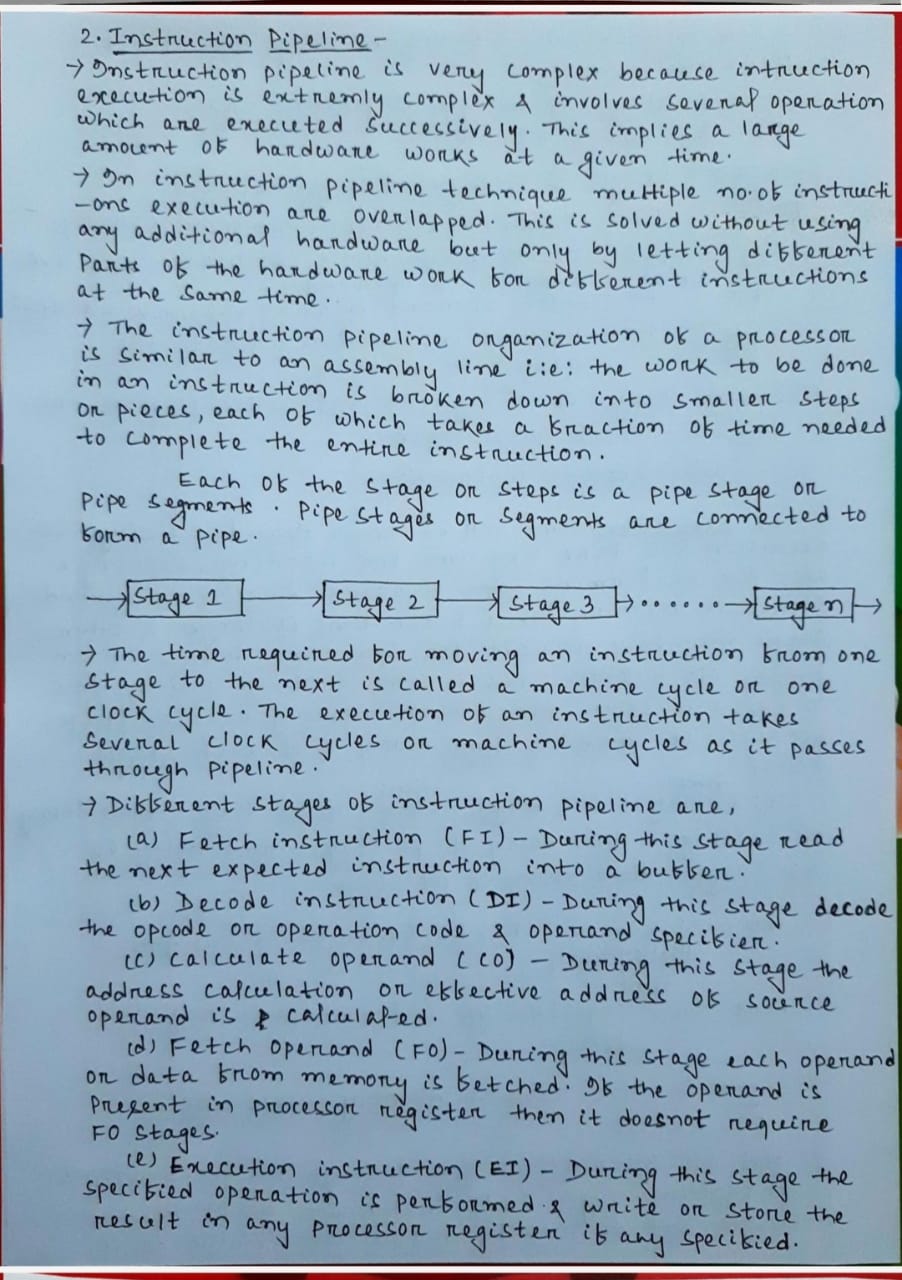 2. Instruction Pipeline -
→ Instruction pipeline is very complex because intruction
execution is extremly complex & involves several operation
which are executed successively. This implies a large
amount of hardware works at a given time.
→ In instruction pipeline technique multiple no. of instructi
-ons execution are overlapped. This is solved without using
any additional hardware but only by letting different
Parts of the hardware work for different instructions
at the same time.
→ The instruction pipeline organization of a processor
is similar to an assembly line i.e: the work to be done
in an instruction is broken down into smaller steps
or pieces, each of which takes a fraction of time needed
to complete the entire instruction.
Each of the stage or steps is a pipe stage or
pipe segments. Pipe stages or segments are connected to
form a pipe.
→ Stage 1 → Stage 2 → Stage 3 → ...... → Stage n →
→ The time required for moving an instruction from one
stage to the next is called a machine cycle or one
clock cycle. The execution of an instruction takes
several clock cycles or machine cycles as it passes
through pipeline.
→ Different stages of instruction pipeline are,
(a) Fetch instruction (FI) - During this stage read
the next expected instruction into a buffer.
(b) Decode instruction (DI) - During this stage decode
the opcode or operation code & operand specifier.
(c) Calculate operand (CO) - During this stage the
address calculation or effective address of source
operand is calculated.
(d) Fetch Operand (FO) - During this stage each operand
or data from memory is fetched. If the operand is
Present in processor register then it doesnot require
FO stages.
(e) Execution instruction (EI) - During this stage the
specified operation is performed & write or store the
result in any processor register if any specified.